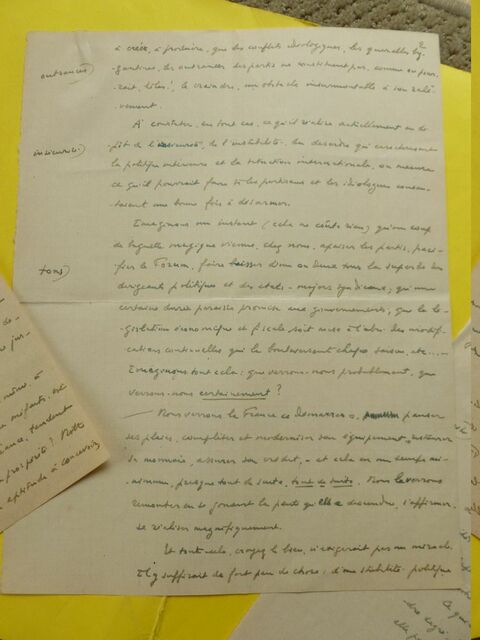 à créer, à produire, que les conflits idéologiques, les querelles by-
zantines, les outrances des partis ne constituent pas, comme on pour-
rait, hélas!, le craindre, un obstacle insurmontable à son relè-
vement.
outrances)
A constater, en tout cas, ce qu'il réalise actuellement en dé-
pit de l'insécurité, de l'instabilité, du désordre qui caractérisent
insécurité)
la politique intérieure et la situation internationale, on mesure
ce qu'il pourrait faire si les partisans et les idéologues consen-
taient une bonne fois à désarmer.
Imaginons un instant (cela ne coûte rien) qu'un coup
de baguette magique vienne, chez nous, apaiser les partis, paci-
fier le Forum, faire baisser d'un ou deux tons la superbe des
tons)
dirigeants politiques et des états-majors syndicaux, qu'une
certaine durée paraisse promise aux gouvernements, que la lé-
gislation économique et fiscale soit mise à l'abri des modifi-
cations continuelles qui la bouleversent chaque saison, etc....
Imaginons tout cela: que verrons-nous probablement, que
verrons-nous certainement?
— Nous verrons la France se démarrer, panser
ses plaies, compléter et moderniser son équipement,
sa monnaie, assurer son crédit, — et cela en un temps mi-
nimum, presque tout de suite, tout de suite. Nous la verrons
remonter en se jouant la pente qu'elle a descendue, s'affirmer
se réaliser magnifiquement.
Et tout cela, croyez-le bien, n'exigerait pas un miracle.
Il y suffirait de fort peu de chose: d'une stabilité politique
prospérité?
aptitude à concevoir